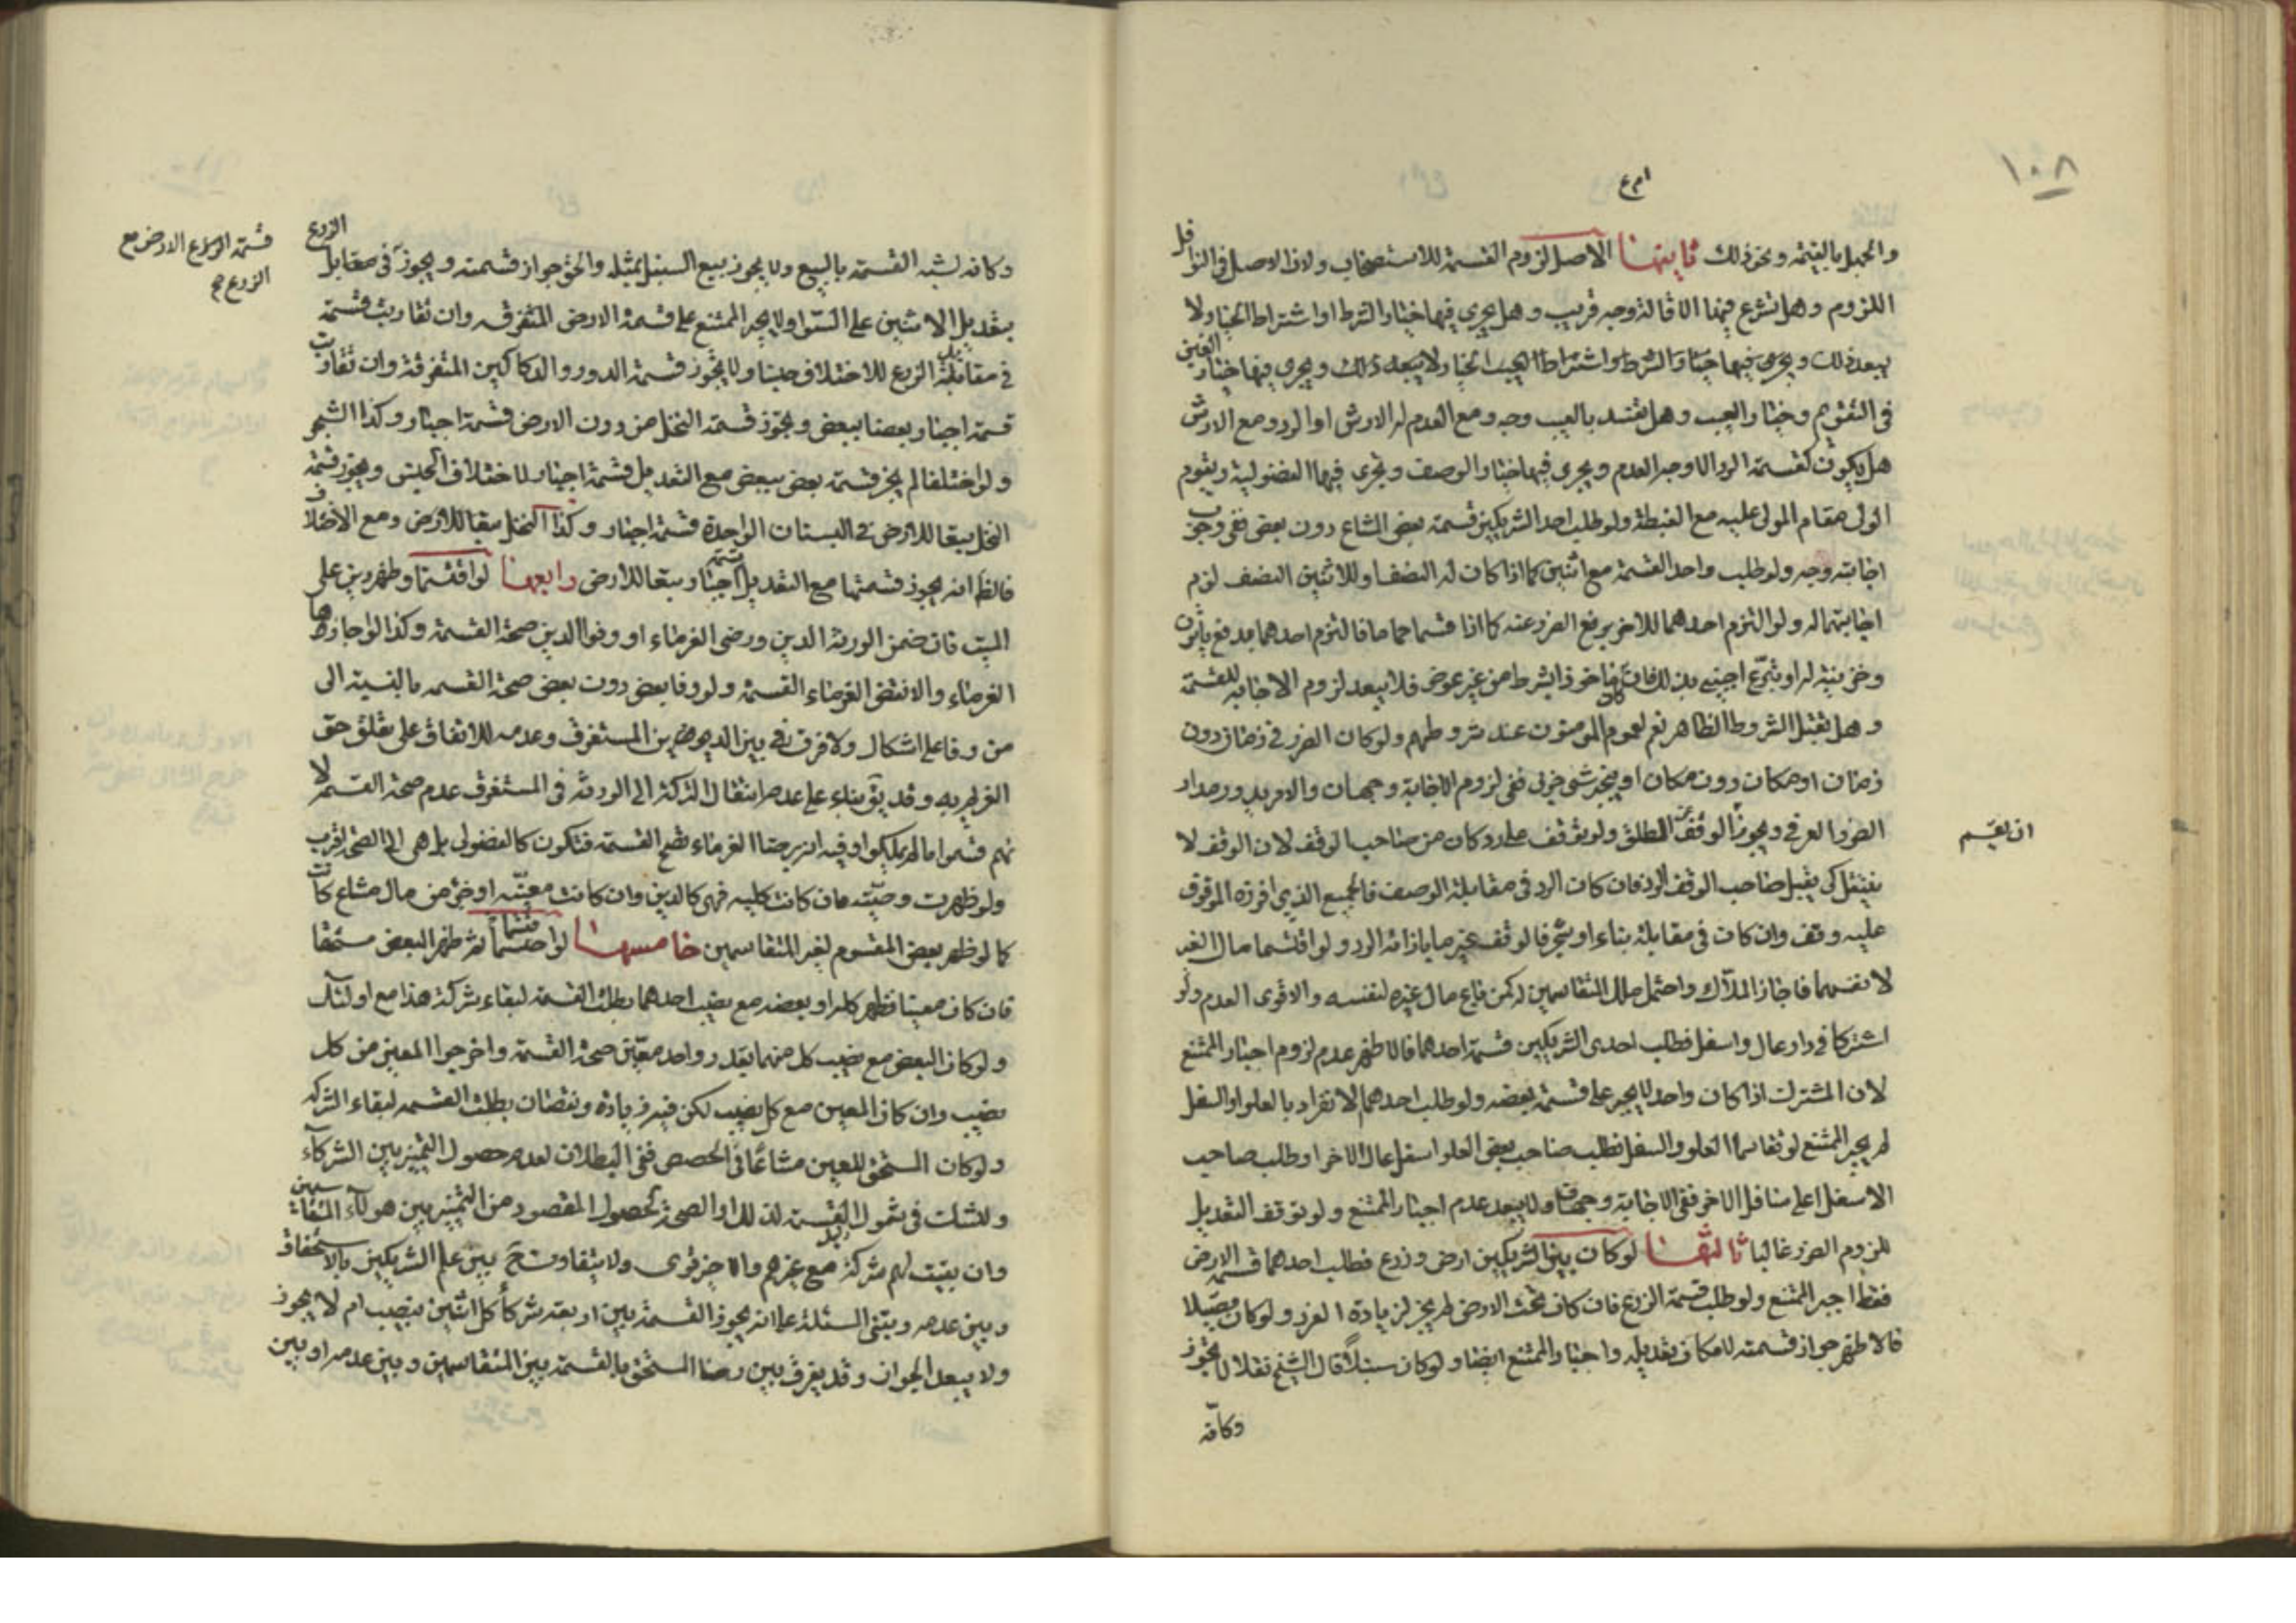 ١٠٨
والجهل بالقيمة ونحو ذلك ثانيها الأصل لزوم القسمة للاستصحاب ولان الاصل في النواقل
اللزوم وهل تشرع فيها الاقالة وجه قريب وهل يجري فيها خيار الشرط او اشتراط الخيار ولا
يبعد ذلك ويجري فيها خيار الشرط واشتراط الخيار ولا يبعد ذلك ويجري فيها خيار الغبن
في التقويم وخيار العيب وهل تفسد بالعيب وجه ومع العدم له الارش او الرد ومع الارش
هل يكون كقسمة الرد الاوجه العدم ويجري فيها خيار الوصف وتجري فيها الفضولية ويقوم
الولي مقام المولى عليه مع الغبطة ولو طلب احد الشريكين قسمة بعض المشاع دون بعض ففي وجوب
اجابته وجه ولو طلب واحد القسمة مع اثنين كما اذا كان له النصف وللاثنين النصف لزم
اجابتهما له ولو التزم احدهما للاخر برفع الضرر عنه كما اذا قسما حماما فالتزم احدهما بدفع
وخزينة له او تبرع اجنبي بذلك فان كان ماخوذا بشرط من غير عوض فلا يبعد لزوم الاجابة للقسمة
وهل تقبل الشروط الظاهر نعم لعموم المومنون عند شروطهم ولو كان الضرر في زمان دون
زمان او مكان دون مكان او ينجبر بشي جزئي ففي لزوم الاجابة وجهان والامر يدور مدار
الضرر العرفي ويجوز الوقف عن المطلق ولو توقف على رد وكان من صاحب الوقف لان الوقف لا
ان يقسم
ينتقل كي يقبل صاحب الوقف الرد فان كان الرد في مقابلة الوصف فالجميع الذي افرزه الموقوف
عليه وقف وان كان في مقابلة بناء او شجر فالوقف غير ما بازائه الرد ولو اقتسما مال الغير
لانفسهما فاجاز الملاك واحتمل ملك المتقاسمين له كمن باع مال غيره لنفسه والاقوى العدم ولو
اشتركا في دار عال واسفل فطلب احدى الشريكين قسمة احدهما فالاظهر عدم لزوم اجبار الممتنع
لان المشترك اذا كان واحد لا يجبر على قسمة بعضه ولو طلب احدهما الانفراد بالعلو او السفل
لم يجبر الممتنع لو تقاسما العلو والسفل فطلب صاحب بعض العلو اسفل عال الاخر او طلب صاحب
الاسفل اعلى سافل الاخر ففي الاجابة وجهان ولا يبعد عدم اجبار الممتنع ولو توقف التعديل
للزوم الضرر غالبا ثالثها لو كان بين الشريكين ارض وزرع فطلب احدهما قسمة الارض
فقط اجبر الممتنع ولو طلب قسمة الزرع فان كان تحت الارض لم يجز لزيادة الغرر ولو كان فصيلا
فالاظهر جواز قسمته لامكان تعديله واجبار الممتنع ايضا ولو كان سنبلا قال الشيخ نقلا لا تجوز
وكانه
قسمة الارض مع
الزرع صح
وكانه لشبه القسمة بالبيع ولا يجوز بيع السنبل بمثله والحق جواز قسمته ويجوز في مقابل الزرع
بتعديل الاثنين على السوا ولا يجبر الممتنع على قسمة الارض المتفرقه وان تقاربت قسمة
في مقابلة الزرع للاختلاف جنسا ولا يجوز قسمة الدور والدكاكين المتفرقة وان تقاربت
قسمة اجبار بعضا ببعض ويجوز قسمة النخل من دون الارض قسمة اجبار وكذا الشجر
ولو اختلفا لم يجز قسمة بعض ببعض مع التعديل قسمة اجبار لاختلاف الجنس ويجوز قسمة
النخل تبعا للارض في البستان الواحدة قسمة اجبار وكذا النخل تبعا للارض ومع الاختلاف
فالظ انه يجوز قسمتها مع التعديل قسمة اجبار تبعا للارض رابعها لو اقتسما وظهر دين على
الميت فان ضمن الورثة الدين ورضى الغرماء او وفوا الدين صحة القسمة وكذا لو اجازها
الغرماء والا نقض الغرماء القسمة ولو وفا بعض دون بعض صحة القسمة بالنسبة الى
من وفا على اشكال ولا فرق في بين الديون بين المستغرق وعدمه للاتفاق على تعلق حق
الغريم به وقد يق بناء على عدم انتقال التركة الى الورثة في المستغرق عدم صحة القسمة لا
نهم قسموا ما لم يملكوا وفيه ان رضا الغرماء تصح القسمة فتكون كالفضولي بل هي الى الصحة اقرب
ولو ظهرت وصية فان كانت كليه فهي كالدين وان كانت معينه او جزء من مال مشاع كانت
كما لو ظهر بعض المقسوم لغير المتقاسمين خامسها لو اقتسما ثم ظهر البعض مستحقا
فان كان معينا فظهر كله او بعضه مع نصيب احدهما بطلت القسمة لبقاء شركة هذا مع اولئك
ولو كان البعض مع نصيب كل منهما بقدر واحد معين صحة القسمة واخرجوا المعين من كل
نصيب وان كان المعين مع كل نصيب لكن فيه زيادة ونقصان بطلت القسمه لبقاء الشركة
ولو كان المستحق للعين مشاعا في الحصص ففي البطلان لعدم حصول التميز بين الشركاء
وللشك في شمول القسمة لذلك او الصحة لحصول المقصود من التميز بين هولاء المتقاسمين
وان بقيت لهم شركة مع غيرهم والاخير قوى ولا يتفاوت ح بين علم الشريكين بالاستحقاق
وبين عدمه ويبتنى المسئلة على انه يجوز القسمة بين اربعة شركاء كل اثنين بنصيب ام لا يجوز
ولا يبعد الجواز وقد يفرق بين رضا المستحق بالقسمة بين المتقاسمين وبين عدمه او بين